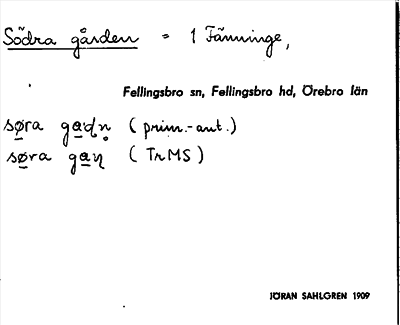 Södra gården = 1 Fänninge,
Fellingsbro sn, Fellingsbro hd, Örebro län
søra gaḍṇ (prim.-ant.)
søra gaṇ (TrMS)
JÖRAN SAHLGREN 1909